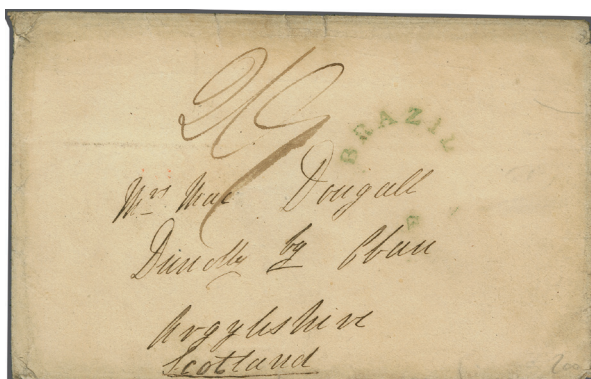 2/9
BRAZIL
Mrs Mac Dougall
Dunolly by Oban
Argyleshire
Scotland
200